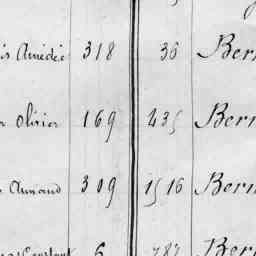 Amédée 318 36 Bern
Olivier 169 435 Bern
Armand 309 1516 Bern
Constant 6 787 Bern